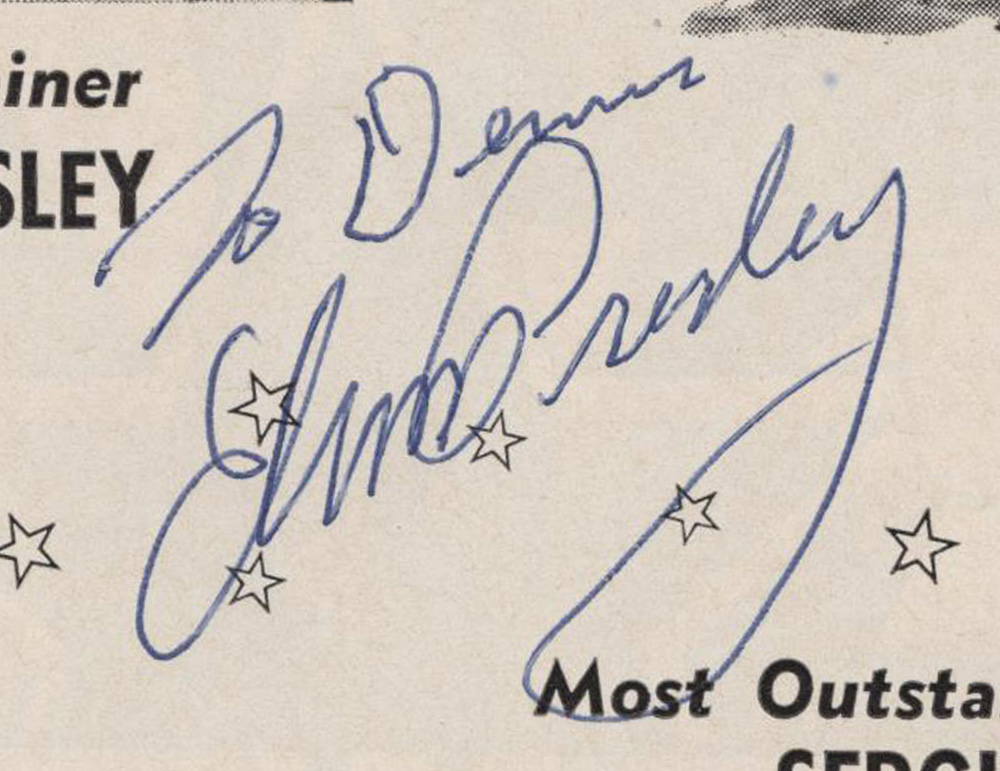 iner
SLEY
To Dennis
Elvis Presley
Most Outsta